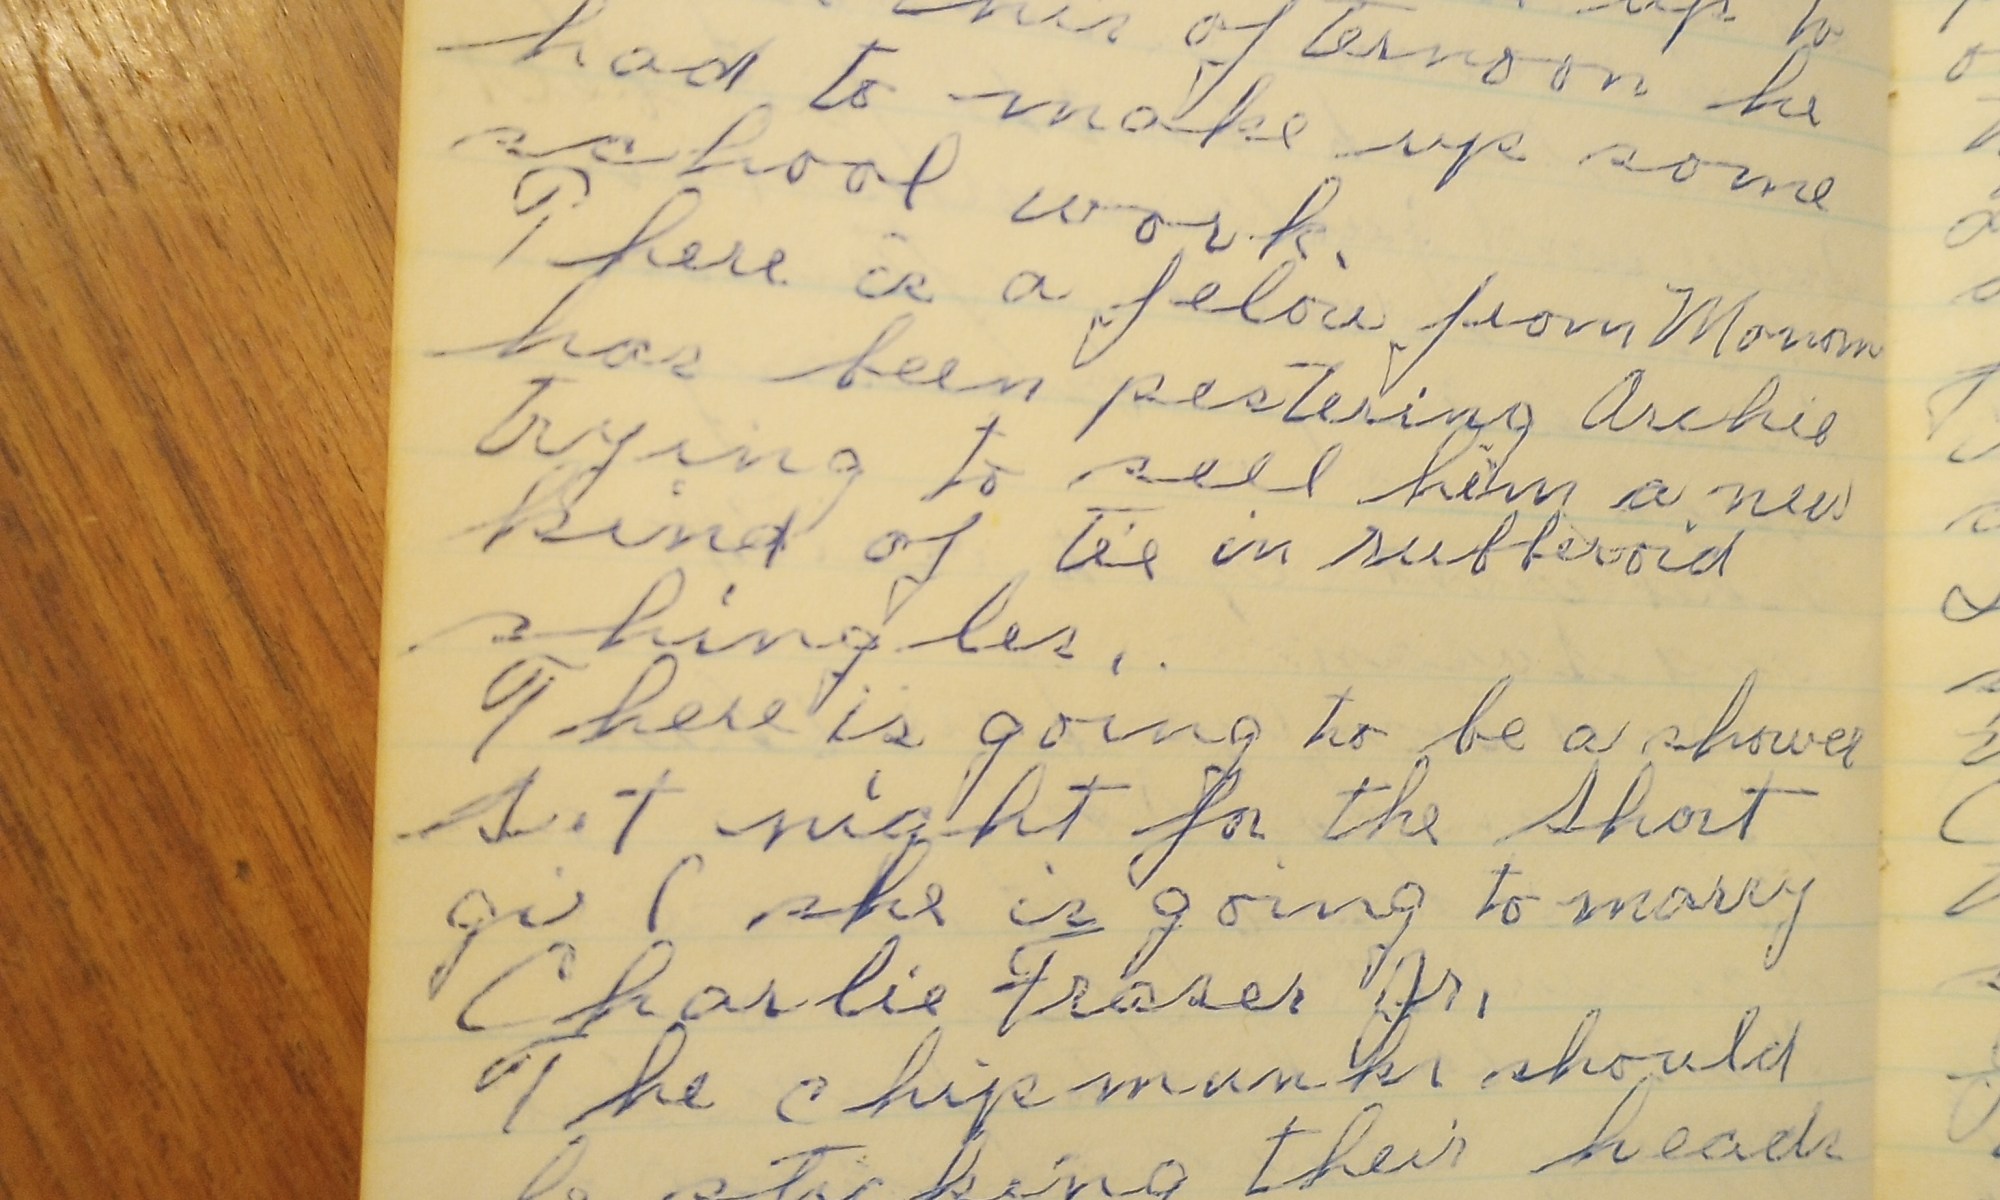 this afternoon he
had to make up some
school work.
There is a felow from Monom
has been pestering Archie
trying to sell him a new
kind of tie in rubberoid
shingles.
There is going to be a shower
Sat night for the Short
girl she is going to marry
Charlie Fraser Jr.
The chipmunks should
be sticking their heads